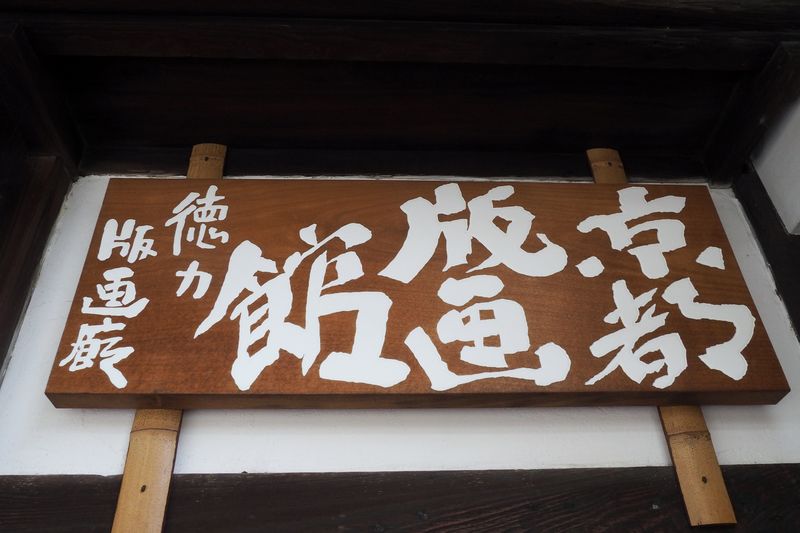 京都
版画
館
徳力
版画廊